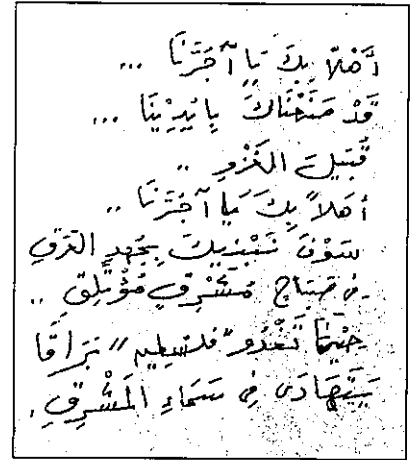 أَهْلاً بِكَ يَا آجُرَّنَا ...
قَدْ صَنَعْنَاكَ بِأَيْدِينَا ...
قُبَيْلَ الغَزْوِ ..
أهلاً بِكَ يَا آجُرَّنَا ..
سَوْفَ نَبْنِيكَ بِجُهدِ العَرَقِ
في صَبَاحٍ مُشْرِقٍ مُؤْتَلِقِ ..
حِينَمَا تَغْدُو "فلسطين" بُرَاقًا
يَتَهَادَى فِي سَمَاءِ المَشْرِقِ.